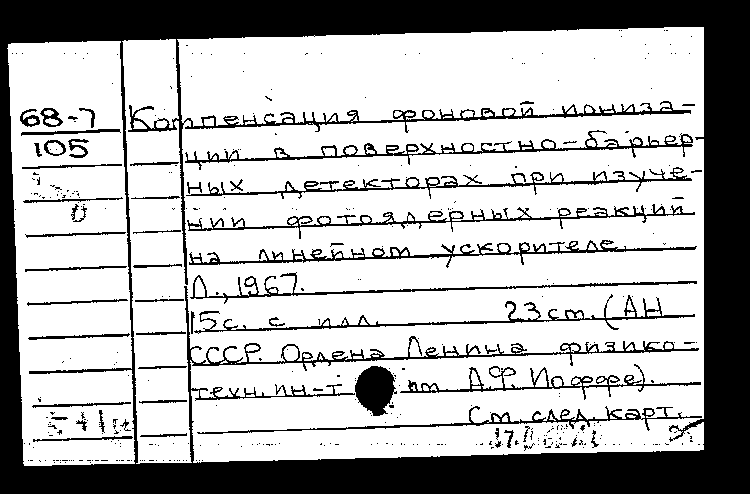 68-7 Компенсация фоновой иониза-
105 ции в поверхностно-барьер-
ных детекторах при изуче-
нии фотоядерных реакций
на линейном ускорителе.
Л., 1967.
15с. с илл. 23см. (АН
СССР. Ордена Ленина физико-
техн. ин-т им А.Ф. Иоффе).
См. след. карт.